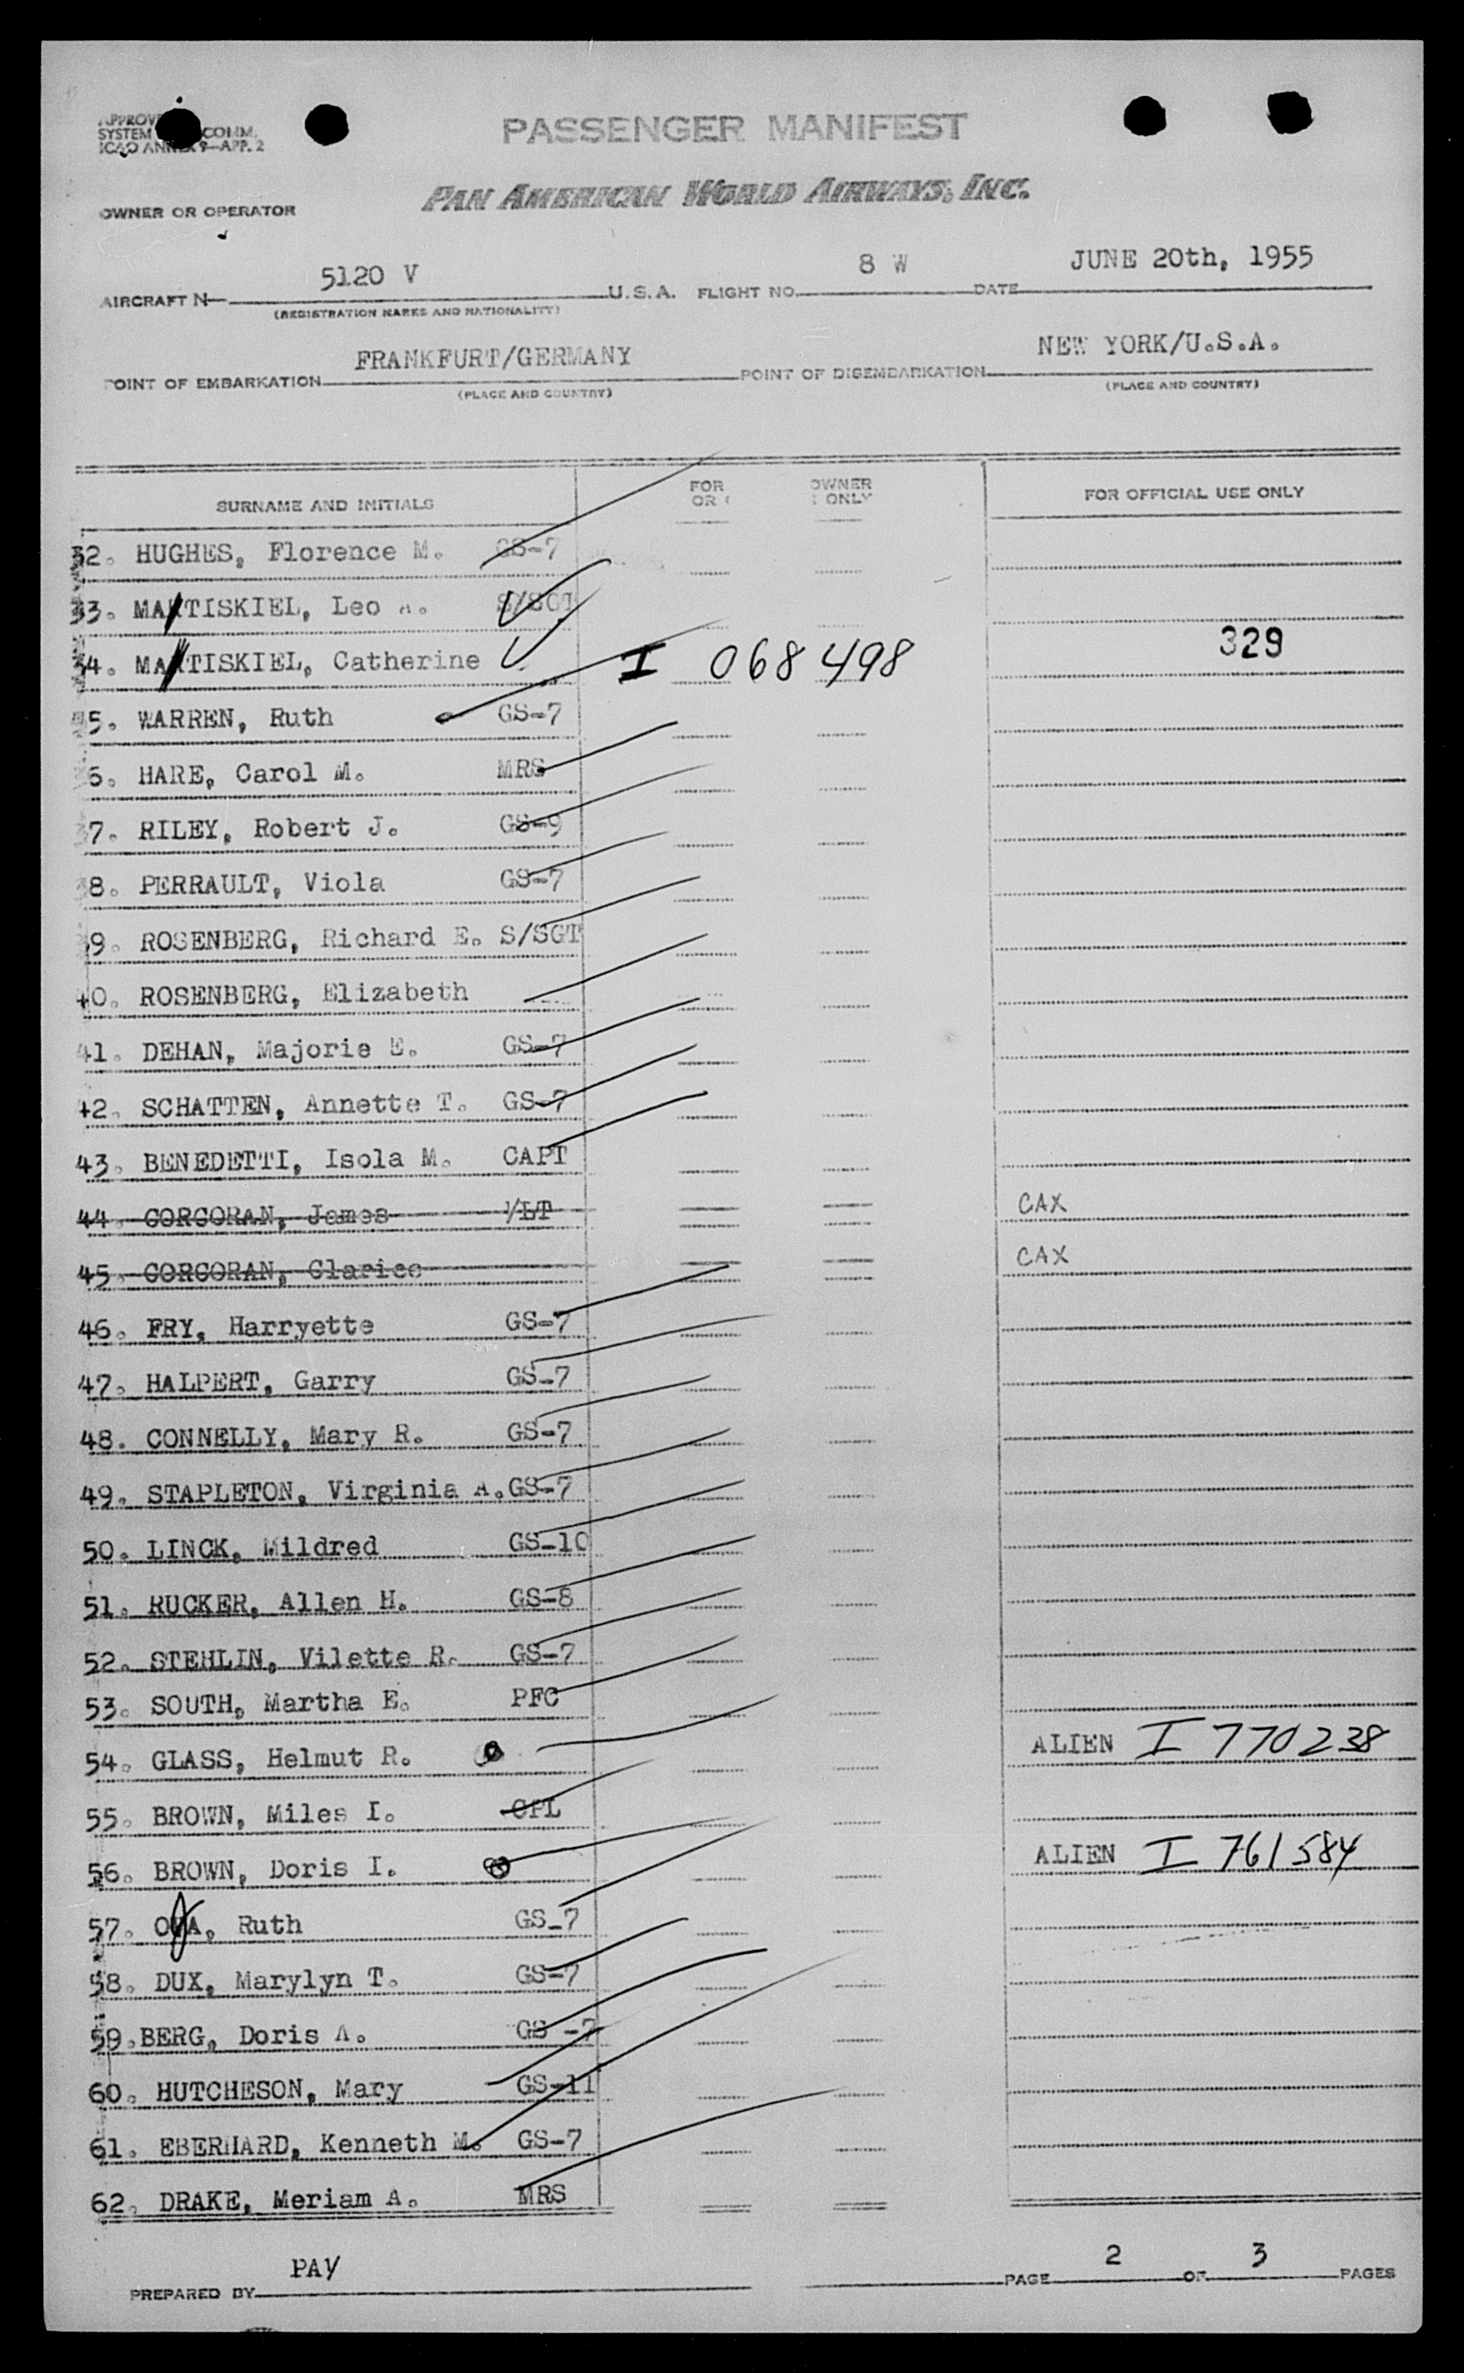 PASSENGER MANIFEST
SYSTEM COMM.
ICAO ANNEX 9—APP. 2
PAN AMERICAN WORLD AIRWAYS, INC.
OWNER OR OPERATOR
AIRCRAFT N 5120 V U.S.A. FLIGHT NO. 8 W DATE JUNE 20th, 1955
(REGISTRATION MARKS AND NATIONALITY)
POINT OF EMBARKATION FRANKFURT/GERMANY POINT OF DISEMBARKATION NEW YORK/U.S.A.
(PLACE AND COUNTRY) (PLACE AND COUNTRY)
SURNAME AND INITIALS FOR OWNER FOR OFFICIAL USE ONLY
OR ONLY
32. HUGHES, Florence M. GS-7
33. MATISKIEL, Leo A. S/SGT
34. MATISKIEL, Catherine I 068498 329
35. WARREN, Ruth GS-7
36. HARE, Carol M. MRS
37. RILEY, Robert J. GS-9
38. PERRAULT, Viola GS-7
39. ROSENBERG, Richard E. S/SGT
40. ROSENBERG, Elizabeth
41. DEHAN, Majorie E. GS-7
42. SCHATTEN, Annette T. GS-7
43. BENEDETTI, Isola M. CAPT
44. CORCORAN, James 1/LT CAX
45. CORCORAN, Clarice CAX
46. FRY, Harryette GS-7
47. HALPERT, Garry GS-7
48. CONNELLY, Mary R. GS-7
49. STAPLETON, Virginia A. GS-7
50. LINCK, Mildred GS-10
51. RUCKER, Allen H. GS-8
52. STEHLIN, Vilette R. GS-7
53. SOUTH, Martha E. PFC
54. GLASS, Helmut R. ALIEN I 770238
55. BROWN, Miles I. CPL
56. BROWN, Doris I. ALIEN I 761584
57. Ruth GS-7
58. DUX, Marylyn T. GS-7
59. BERG, Doris A. GS-7
60. HUTCHESON, Mary GS-11
61. EBERHARD, Kenneth M. GS-7
62. DRAKE, Meriam A. MRS
PREPARED BY PAY PAGE 2 OF 3 PAGES